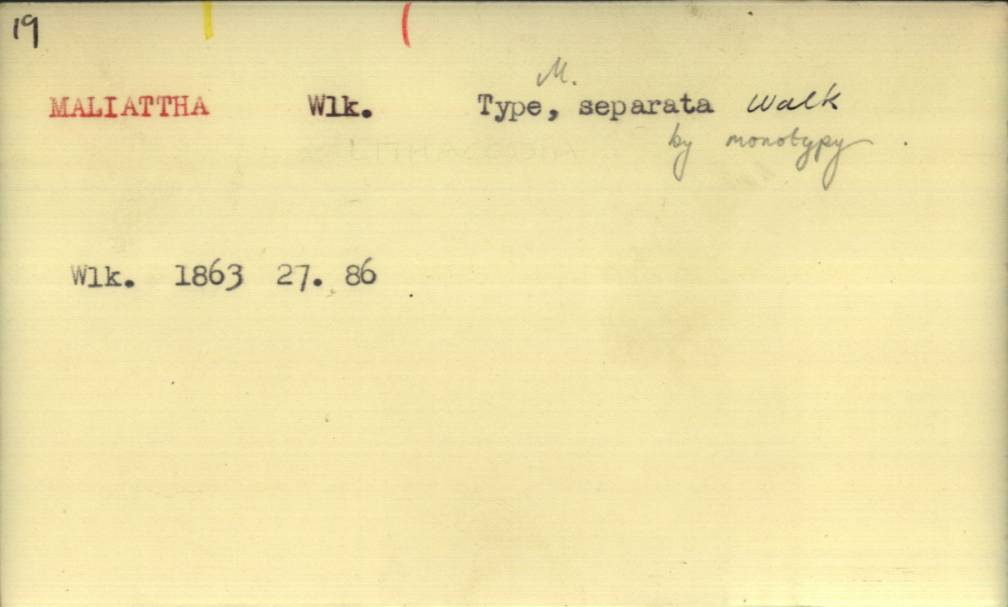 19
MALIATTHA Wlk. Type, M. separata Walk
by monotypy.
Wlk. 1863 27. 86